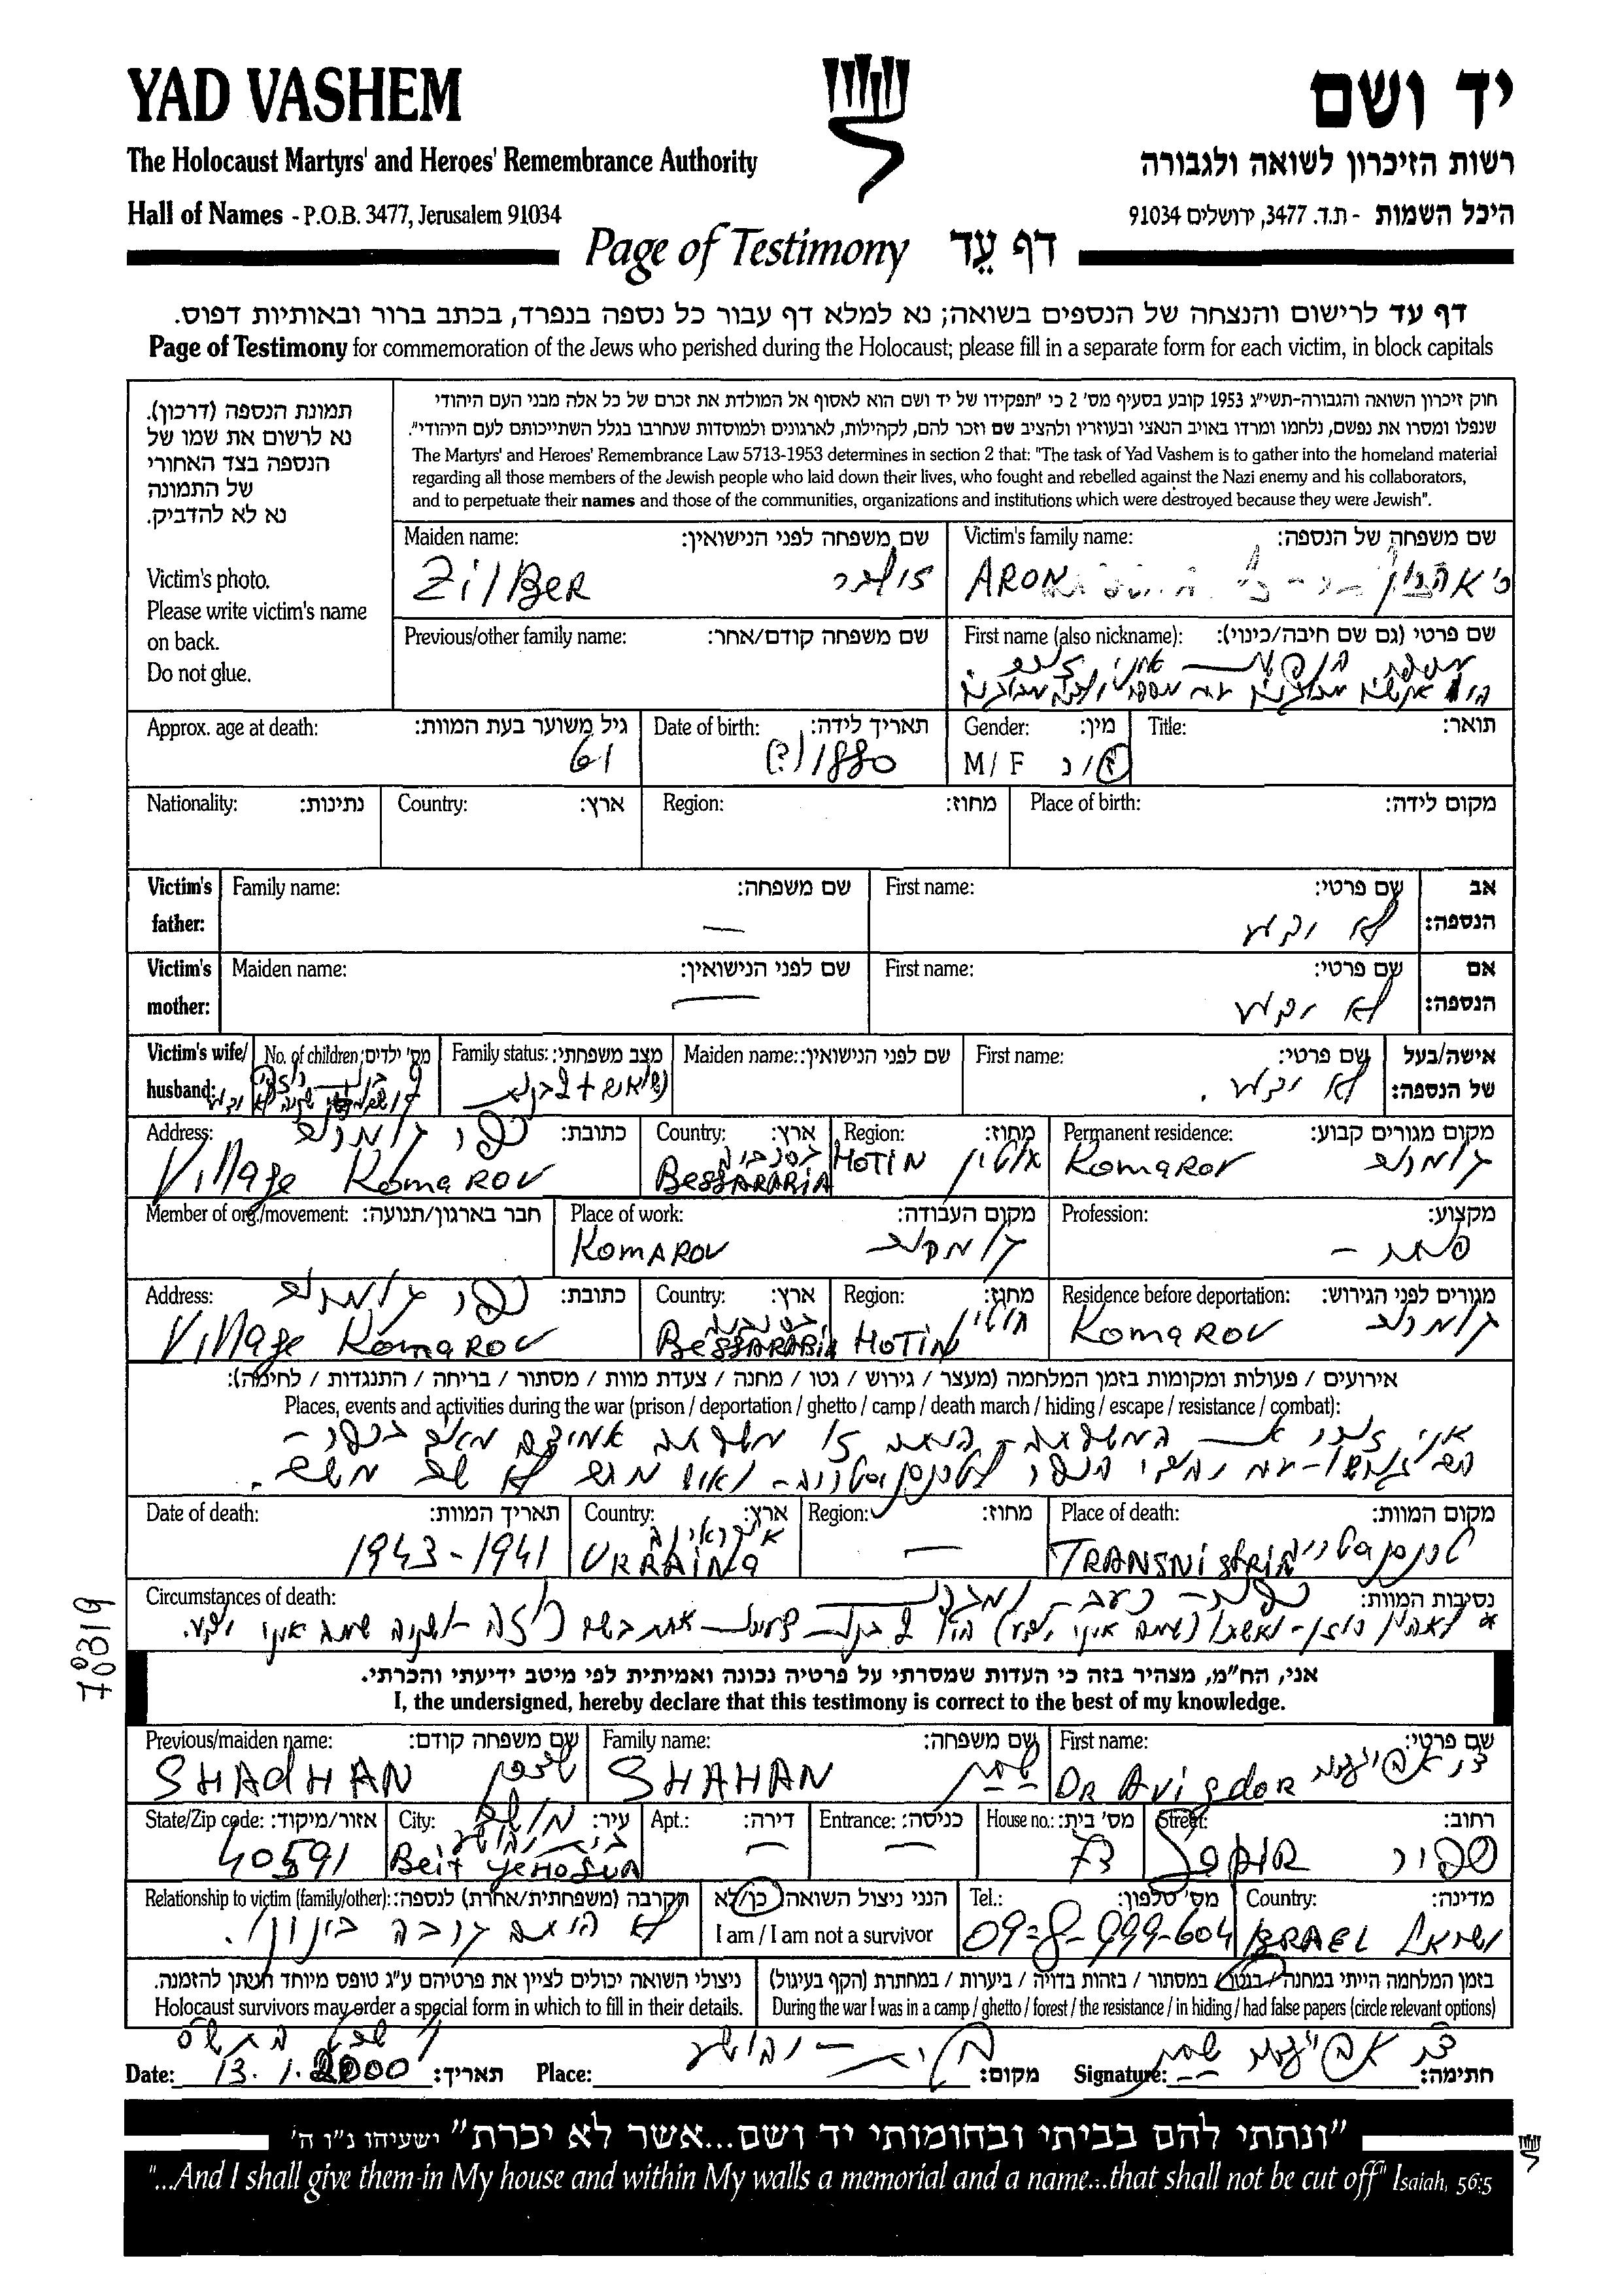 YAD VASHEM
יד ושם
The Holocaust Martyrs' and Heroes' Remembrance Authority
רשות הזיכרון לשואה ולגבורה
Hall of Names - P.O.B. 3477, Jerusalem 91034
היכל השמות - ת.ד. 3477, ירושלים 91034
Page of Testimony דף עֵד
דף עד לרישום והנצחה של הנספים בשואה; נא למלא דף עבור כל נספה בנפרד, בכתב ברור ובאותיות דפוס.
Page of Testimony for commemoration of the Jews who perished during the Holocaust; please fill in a separate form for each victim, in block capitals
תמונת הנספה (דרכון).
נא לרשום את שמו של
הנספה בצד האחורי
של התמונה
נא לא להדביק.
Victim's photo.
Please write victim's name
on back.
Do not glue.
חוק זיכרון השואה והגבורה-תשי"ג 1953 קובע בסעיף מס' 2 כי "תפקידו של יד ושם הוא לאסוף אל המולדת את זכרם של כל אלה מבני העם היהודי
שנפלו ומסרו את נפשם, נלחמו ומרדו באויב הנאצי ובעוזריו ולהציב שם וזכר להם, לקהילות, לארגונים ולמוסדות שנחרבו בגלל השתייכותם לעם היהודי".
The Martyrs' and Heroes' Remembrance Law 5713-1953 determines in section 2 that: "The task of Yad Vashem is to gather into the homeland material
regarding all those members of the Jewish people who laid down their lives, who fought and rebelled against the Nazi enemy and his collaborators,
and to perpetuate their names and those of the communities, organizations and institutions which were destroyed because they were Jewish".
Maiden name: שם משפחה לפני הנישואין:
ZilBER זילבר
Victim's family name: שם משפחה של הנספה:
ARON
Previous/other family name: שם משפחה קודם/אחר:
First name (also nickname): שם פרטי (גם שם חיבה/כינוי):
Approx. age at death: גיל משוער בעת המוות:
61
Date of birth: תאריך לידה:
1880 (?)
Gender: מין:
M / F ז / נ
Title: תואר:
Nationality: נתינות:
Country: ארץ:
Region: מחוז:
Place of birth: מקום לידה:
Victim's father: Family name: שם משפחה:
—
First name: שם פרטי:
לא ידוע
אב הנספה:
Victim's mother: Maiden name: שם לפני הנישואין:
—
First name: שם פרטי:
לא ידוע
אם הנספה:
Victim's wife/ husband:
No. of children: מס' ילדים:
Family status: מצב משפחתי:
נשוא + 2 בנות
Maiden name: שם לפני הנישואין:
First name: שם פרטי:
לא ידוע.
אישה/בעל של הנספה:
Address: כתובת:
כפר קומרוב
Village KomaROV
Country: ארץ:
בסרביה
BeSSARABIA
Region: מחוז:
HOTIN
Permanent residence: מקום מגורים קבוע:
KomaROV קומרוב
Member of org./movement: חבר בארגון/תנועה:
Place of work: מקום העבודה:
KomAROV קומרוב
Profession: מקצוע:
סוחר -
Address: כתובת:
כפר קומרוב
Village KomaROV
Country: ארץ:
בסרביה
BeSSARABIA
Region: מחוז:
HOTIN חוטין
Residence before deportation: מגורים לפני הגירוש:
KomaROV קומרוב
אירועים / פעולות ומקומות בזמן המלחמה (מעצר / גירוש / גטו / מחנה / צעדת מוות / מסתור / בריחה / התנגדות / לחימה):
Places, events and activities during the war (prison / deportation / ghetto / camp / death march / hiding / escape / resistance / combat):
אני זוכר את המשפחה
הכפר לטרנסניסטריה
Date of death: תאריך המוות:
1943 - 1941
Country: ארץ:
אוקראינה
UKRAINA
Region: מחוז:
—
Place of death: מקום המוות:
TRANSNISTRIA טרנסניסטריה
Circumstances of death: נסיבות המוות:
רעב
אני, הח"מ, מצהיר בזה כי העדות שמסרתי על פרטיה נכונה ואמיתית לפי מיטב ידיעתי והכרתי.
I, the undersigned, hereby declare that this testimony is correct to the best of my knowledge.
Previous/maiden name: שם משפחה קודם:
SHAdHAN שדכן
Family name: שם משפחה:
SHAHAN שחן
First name: שם פרטי:
DR AVigdoR דר אביגדור
State/Zip code: אזור/מיקוד:
40591
City: עיר:
מושב
בית יהושע
Beit YeHOSUA
Apt.: דירה:
—
Entrance: כניסה:
—
House no.: מס' בית:
73
Street: רחוב:
SAPIR ספיר
Relationship to victim (family/other): הקרבה (משפחתית/אחרת) לנספה:
לא הייתה קרבה בינינו.
הנני ניצול השואה: כן/לא
I am / I am not a survivor
Tel.: מס' טלפון:
09-8-999-604
Country: מדינה:
ISRAEL ישראל
ניצולי השואה יכולים לציין את פרטיהם ע"ג טופס מיוחד הניתן להזמנה.
Holocaust survivors may order a special form in which to fill in their details.
בזמן המלחמה הייתי במחנה / בגטו / במסתור / בזהות בדויה / ביערות / במחתרת (הקף בעיגול)
During the war I was in a camp / ghetto / forest / the resistance / in hiding / had false papers (circle relevant options)
Date: 13.1.2000 תאריך:
Place: בית יהושע מקום:
Signature: דר אביגדור שחן חתימה:
70819
"ונתתי להם בביתי ובחומותי יד ושם...אשר לא יכרת" ישעיהו נ"ו ה'
"...And I shall give them in My house and within My walls a memorial and a name...that shall not be cut off" Isaiah, 56:5